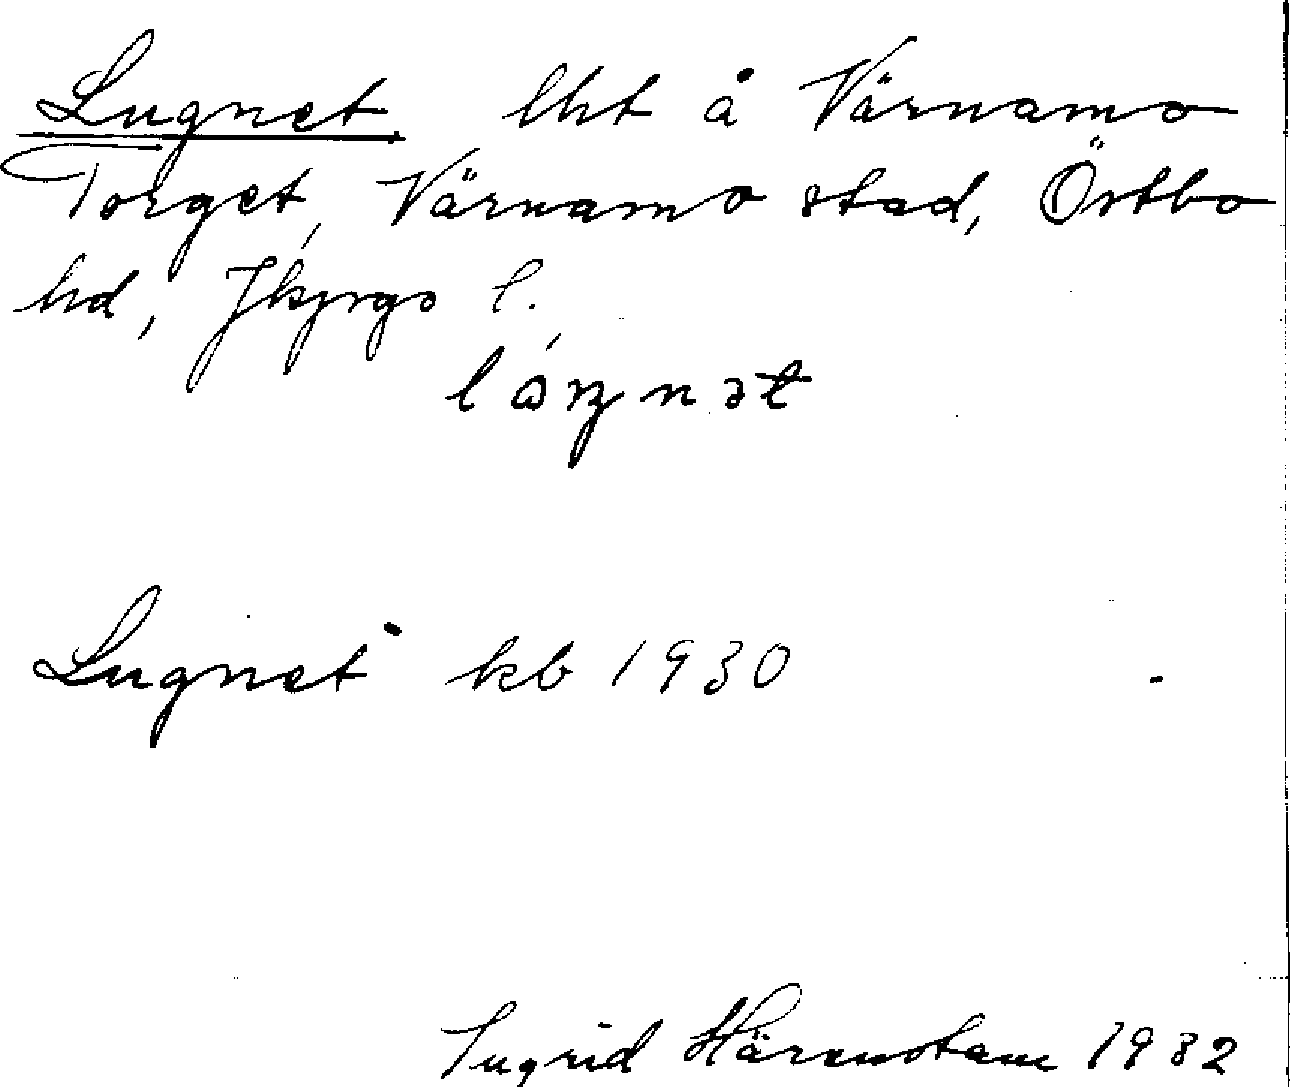 Lugnet lht å Värnamo
Torget, Värnamo stad, Östbo
hd, Jkpgs l.
Lugnet kb 1930
Ingrid Härenstam 1932